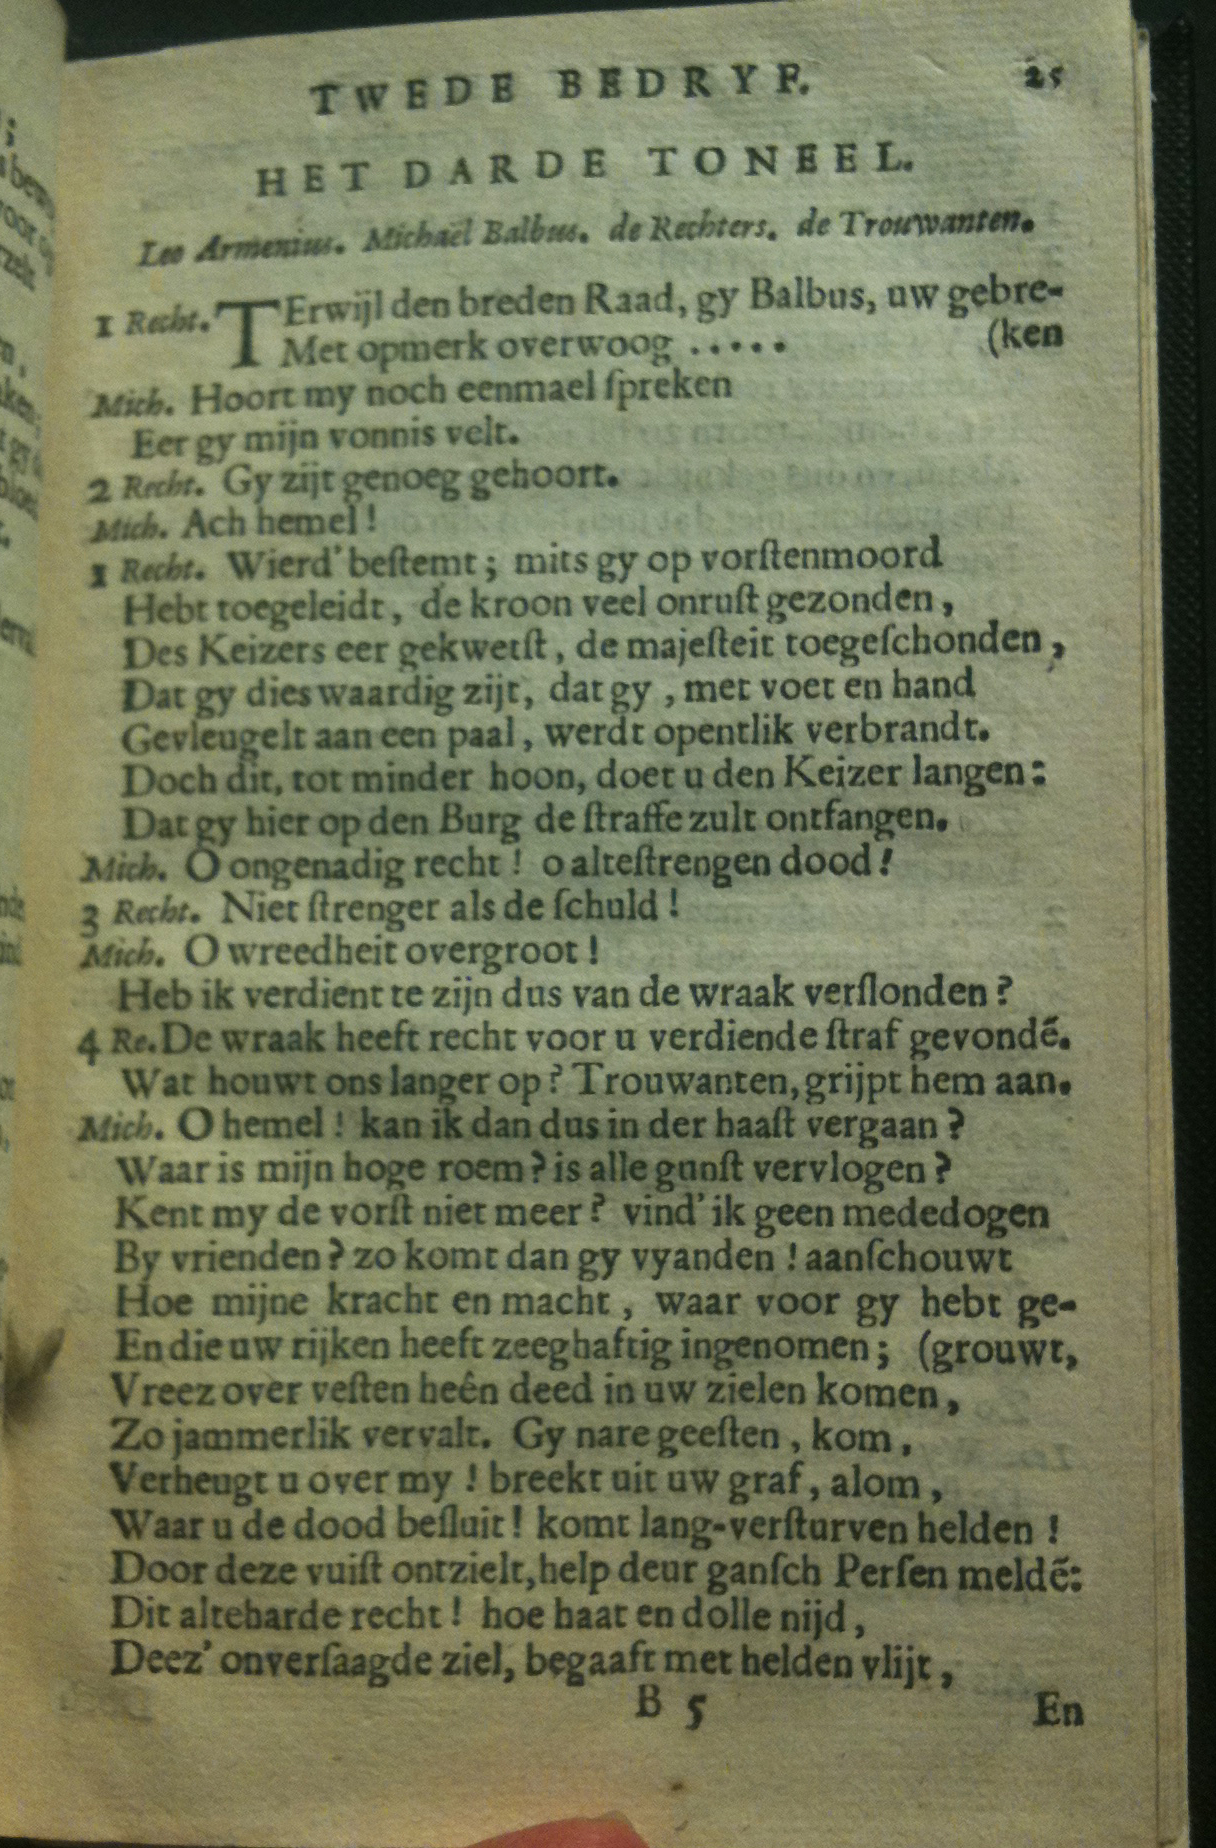 TWEDE BEDRYF. 25
HET DARDE TONEEL.
Leo Armenius. Michaël Balbus. de Rechters. de Trouwanten.
1 Recht. TErwijl den breden Raad, gy Balbus, uw gebre-
Met opmerk overwoog ..... (ken
Mich. Hoort my noch eenmael ſpreken
Eer gy mijn vonnis velt.
2 Recht. Gy zijt genoeg gehoort.
Mich. Ach hemel!
1 Recht. Wierd' beſtemt; mits gy op vorſtenmoord
Hebt toegeleidt, de kroon veel onruſt gezonden,
Des Keizers eer gekwetſt, de majeſteit toegeſchonden,
Dat gy dies waardig zijt, dat gy, met voet en hand
Gevleugelt aan een paal, werdt opentlik verbrandt.
Doch dit, tot minder hoon, doet u den Keizer langen:
Dat gy hier op den Burg de ſtraffe zult ontfangen.
Mich. O ongenadig recht! o alteſtrengen dood!
3 Recht. Niet ſtrenger als de ſchuld!
Mich. O wreedheit overgroot!
Heb ik verdient te zijn dus van de wraak verſlonden?
4 Re. De wraak heeft recht voor u verdiende ſtraf gevondē.
Wat houwt ons langer op? Trouwanten, grijpt hem aan.
Mich. O hemel! kan ik dan dus in der haaſt vergaan?
Waar is mijn hoge roem? is alle gunſt vervlogen?
Kent my de vorſt niet meer? vind' ik geen mededogen
By vrienden? zo komt dan gy vyanden! aanſchouwt
Hoe mijne kracht en macht, waar voor gy hebt ge-
En die uw rijken heeft zeeghaftig ingenomen; (grouwt,
Vreez over veſten heên deed in uw zielen komen,
Zo jammerlik vervalt. Gy nare geeſten, kom,
Verheugt u over my! breekt uit uw graf, alom,
Waar u de dood beſluit! komt lang-verſturven helden!
Door deze vuiſt ontzielt, help deur ganſch Perſen meldē:
Dit alteharde recht! hoe haat en dolle nijd,
Deez' onverſaagde ziel, begaaft met helden vlijt,
B 5 En